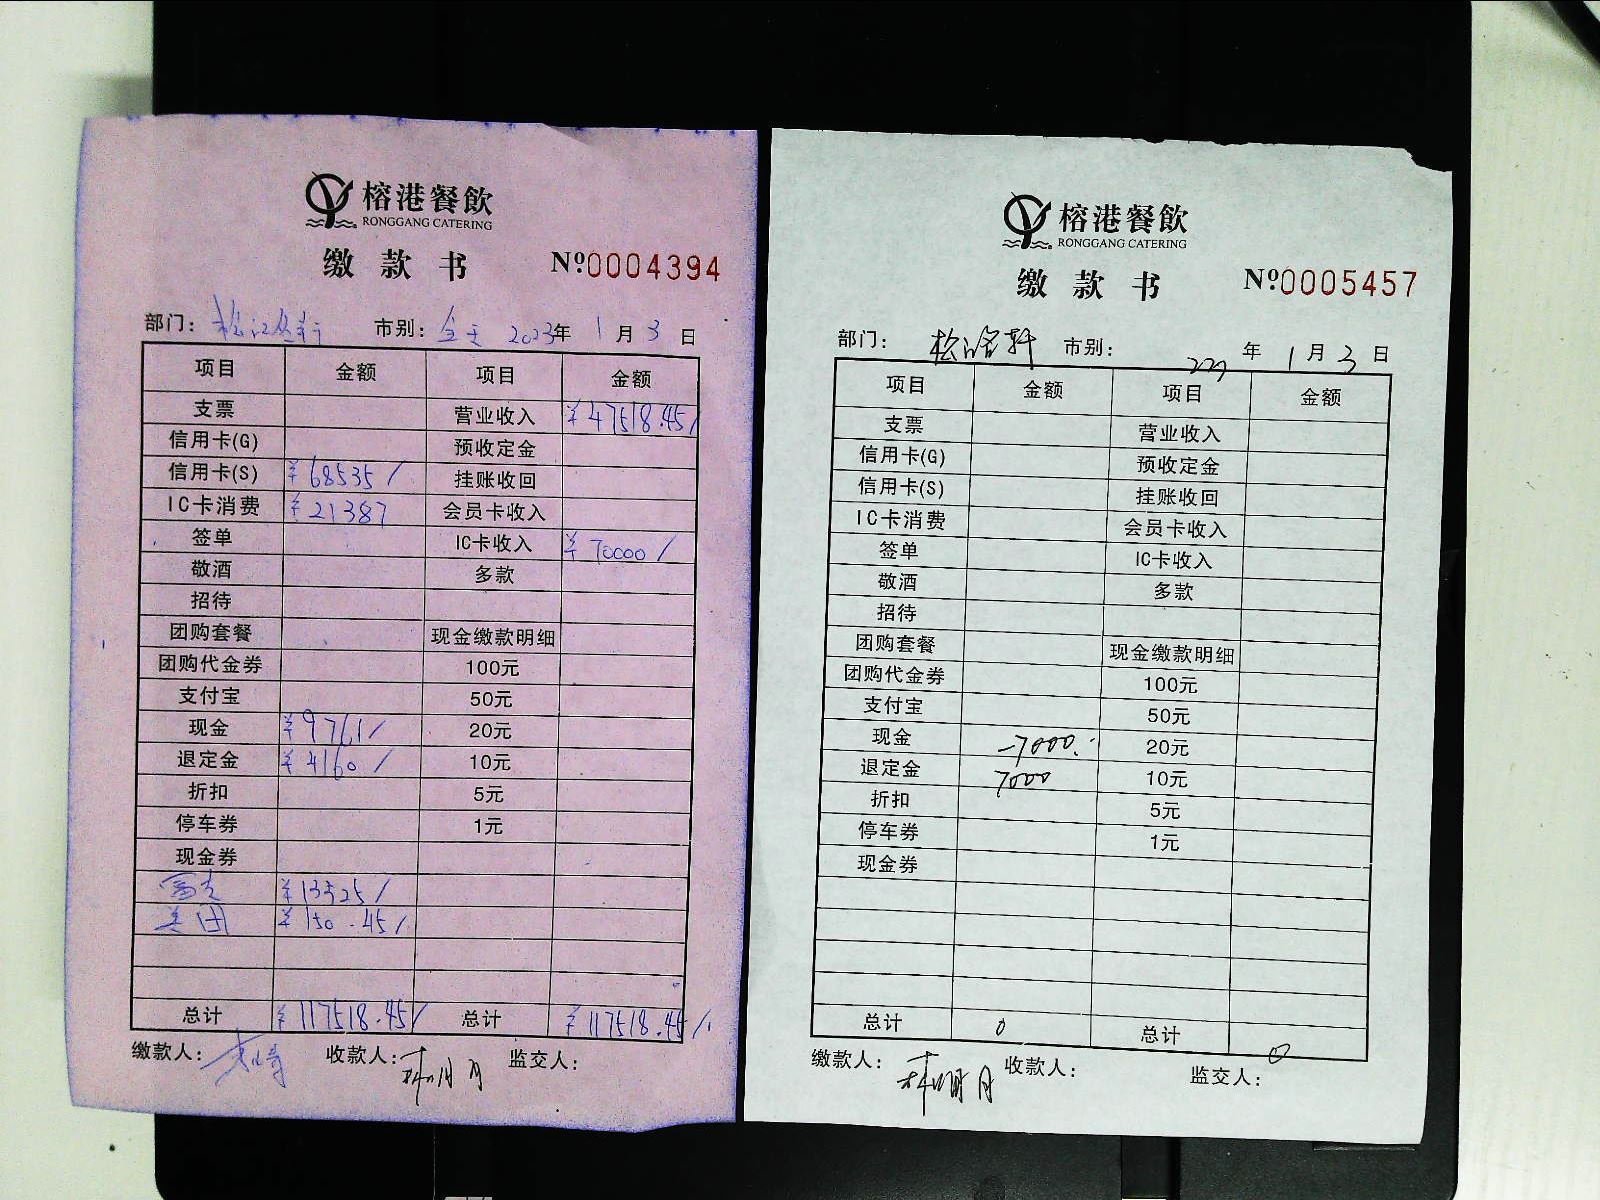 榕港餐飲
RONGGANG CATERING
缴款书 №0004394
部门： 市别：全天 2023年1月3日
项目 金额 项目 金额
支票 营业收入 ¥47518.45/
信用卡(G) 预收定金
信用卡(S) ¥68535/ 挂账收回
IC卡消费 ¥21387 会员卡收入
签单 IC卡收入 ¥70000/
敬酒 多款
招待
团购套餐 现金缴款明细
团购代金券 100元
支付宝 50元
现金 ¥9761/ 20元
退定金 ¥4160/ 10元
折扣 5元
停车券 1元
现金券
¥13525/
美团 ¥150.45/
总计 ¥117518.45/ 总计 ¥117518.45/
缴款人： 收款人： 监交人：
榕港餐飲
RONGGANG CATERING
缴款书 №0005457
部门： 市别： 年1月3日
项目 金额 项目 金额
支票 营业收入
信用卡(G) 预收定金
信用卡(S) 挂账收回
IC卡消费 会员卡收入
签单 IC卡收入
敬酒 多款
招待
团购套餐 现金缴款明细
团购代金券 100元
支付宝 50元
现金 -7000. 20元
退定金 7000 10元
折扣 5元
停车券 1元
现金券
总计 0 总计 0
缴款人： 收款人： 监交人：